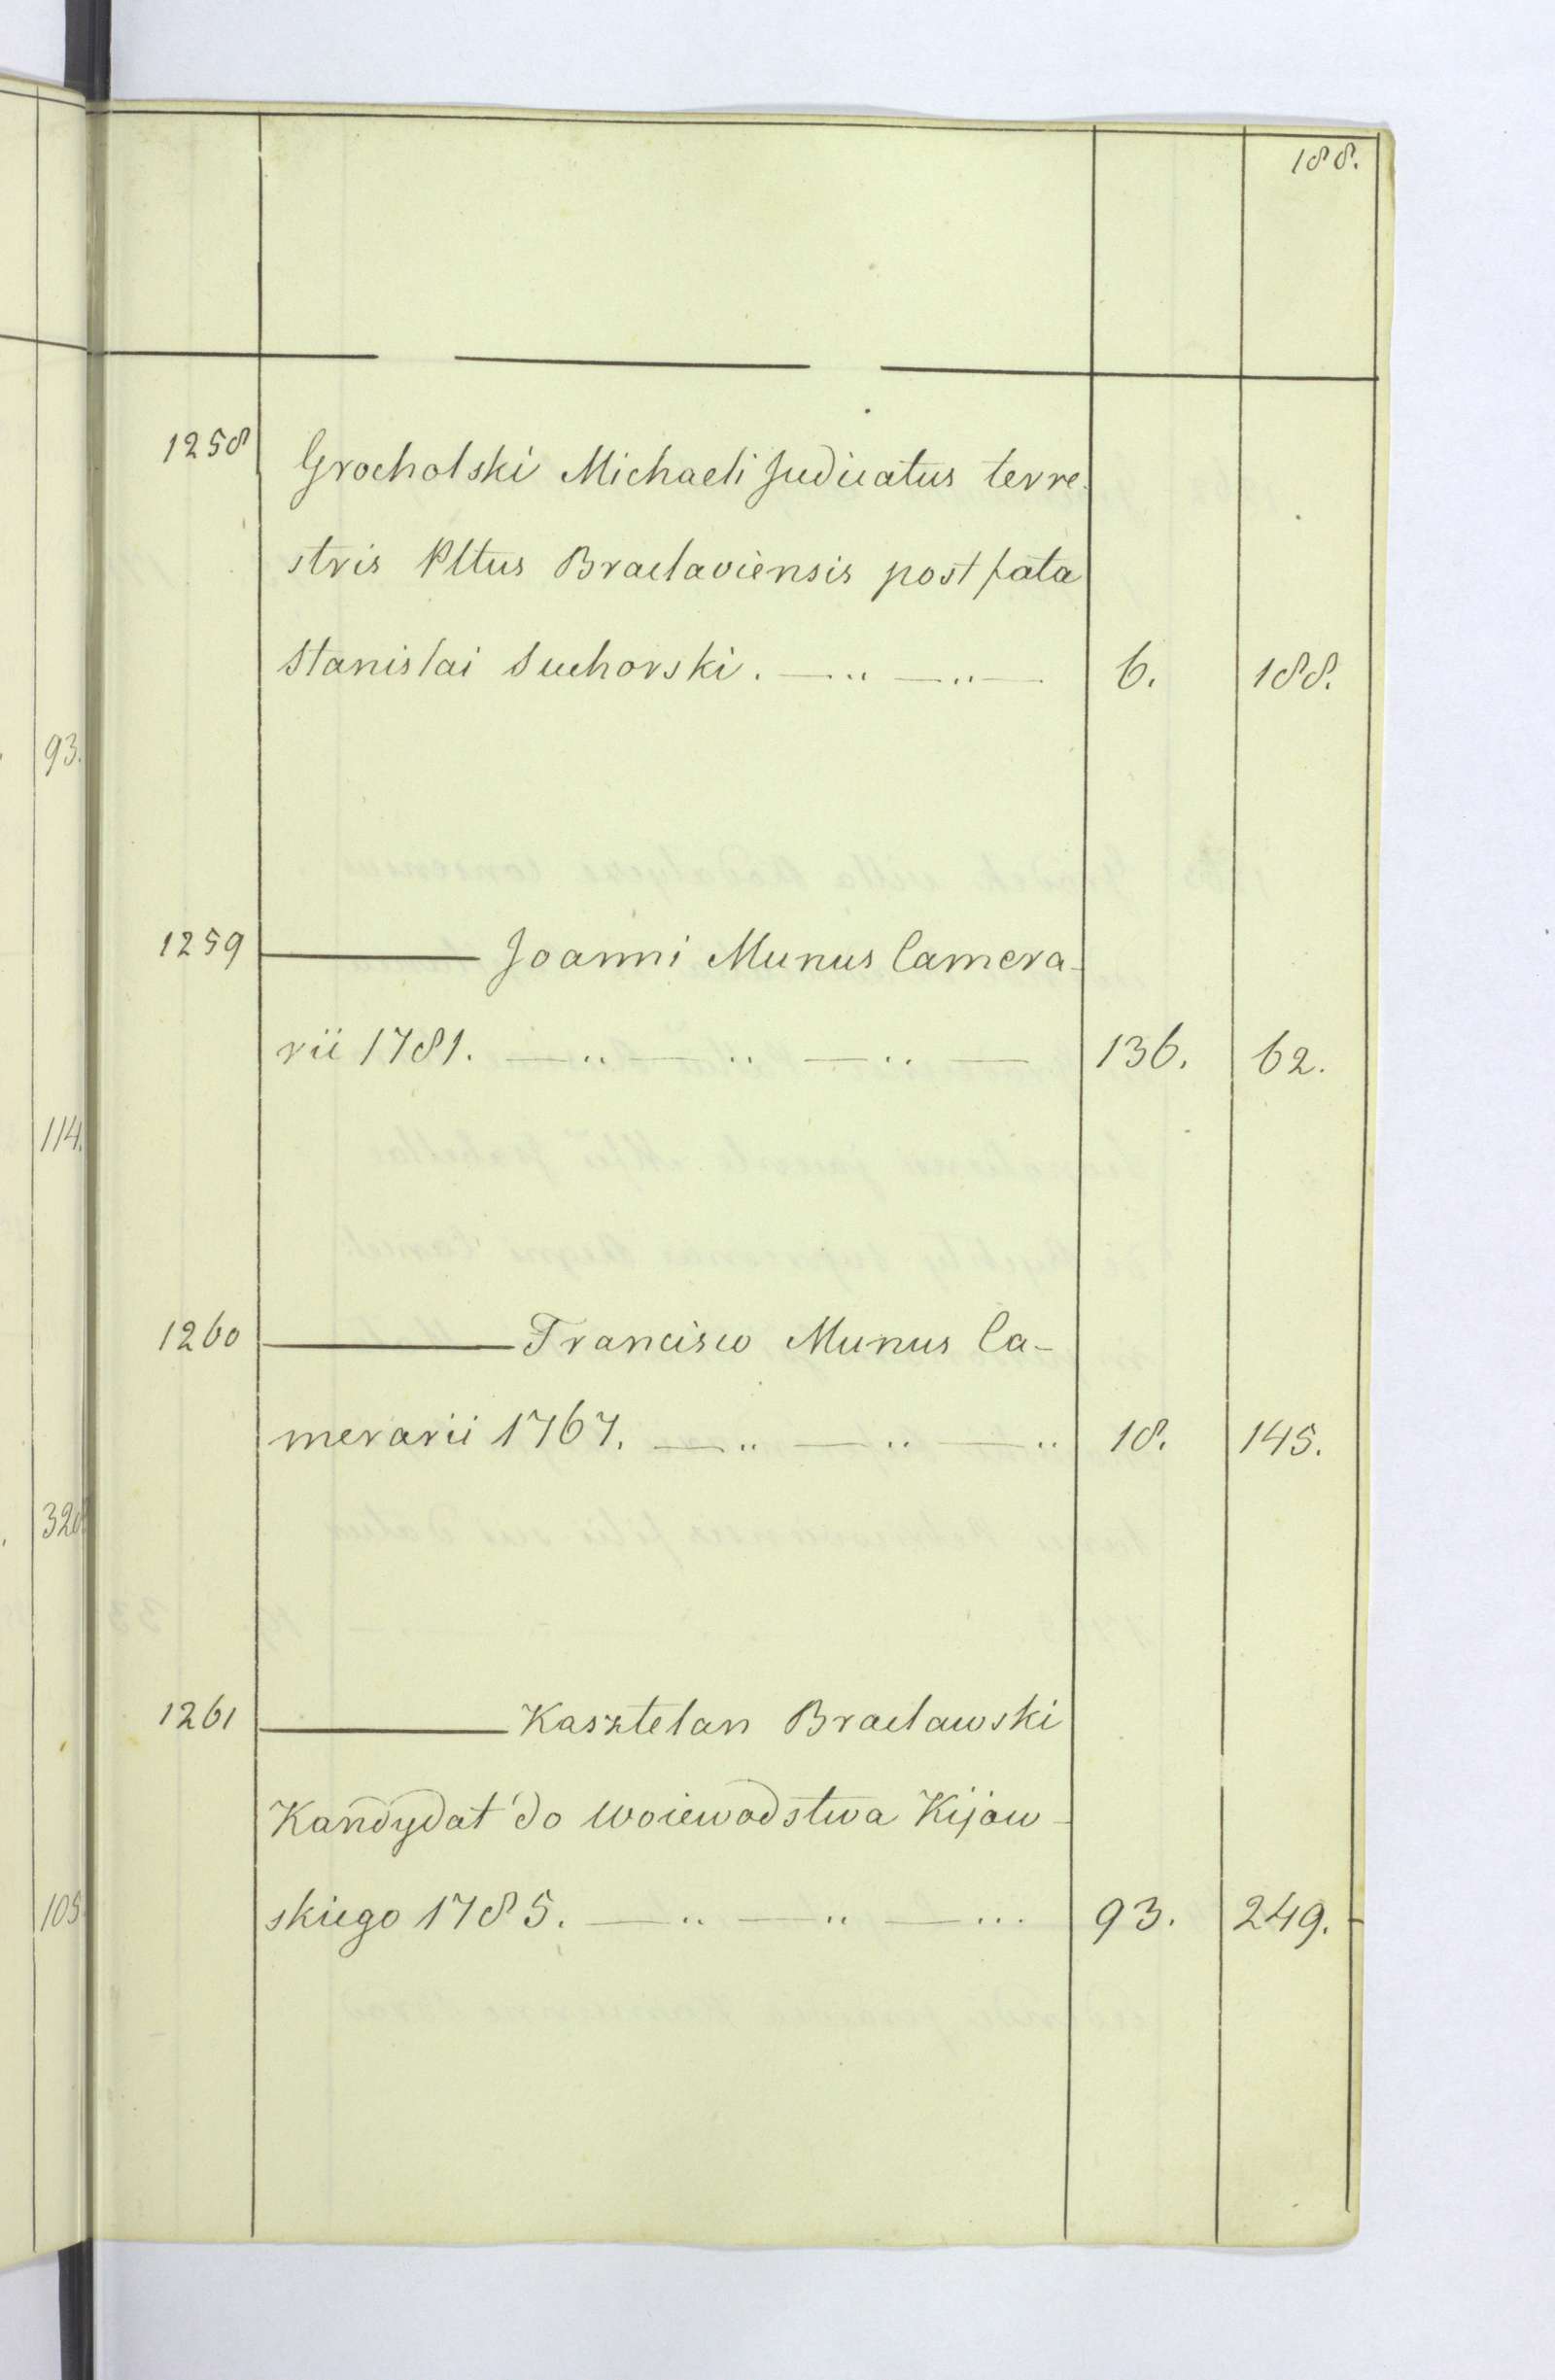 188.
1258 Grocholski Michaeli Judicatus terre-
stris Pltus Braclaviensis post fata
Stanislai Suchorski. 6. 188.
1259 Joanni Munus Camera-
rii 1781. 136. 62.
1260 Francisco Munus Ca-
merarii 1767. 18. 145.
1261 Kasztelan Braclawski
Kandydat do Woiewodstwa Kijow-
skiego 1785. 93. 249.
93.
114.
105